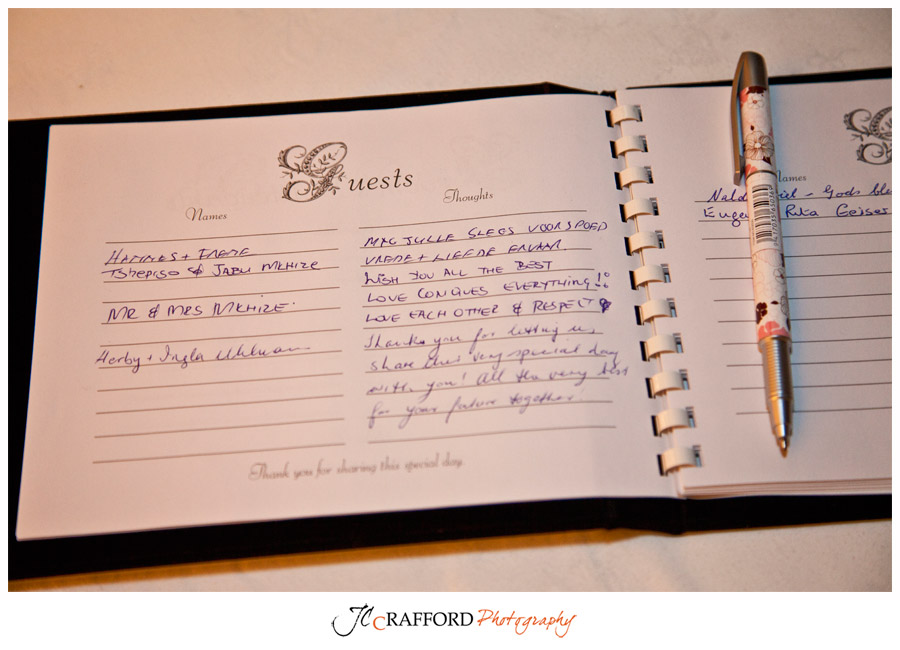 Guests
Names
Thoughts
HANNES + 
Tshepiso & JABU MKHIZE
MR & MRS MKHIZE
Herby + Ingla
MAG JULLE SLEGS VOORSPOED
VREDE + LIEFDE ERVAAR
WISH YOU ALL THE BEST
LOVE CONQUES EVERYTHING!!
LOVE EACH OTHER & RESPECT
Thanks you for letting us
share this very special day
with you! All the very best
for your future together!
Thank you for sharing this special day
Names
Gods ble
Rita Geiser
JC CRAFFORD Photography